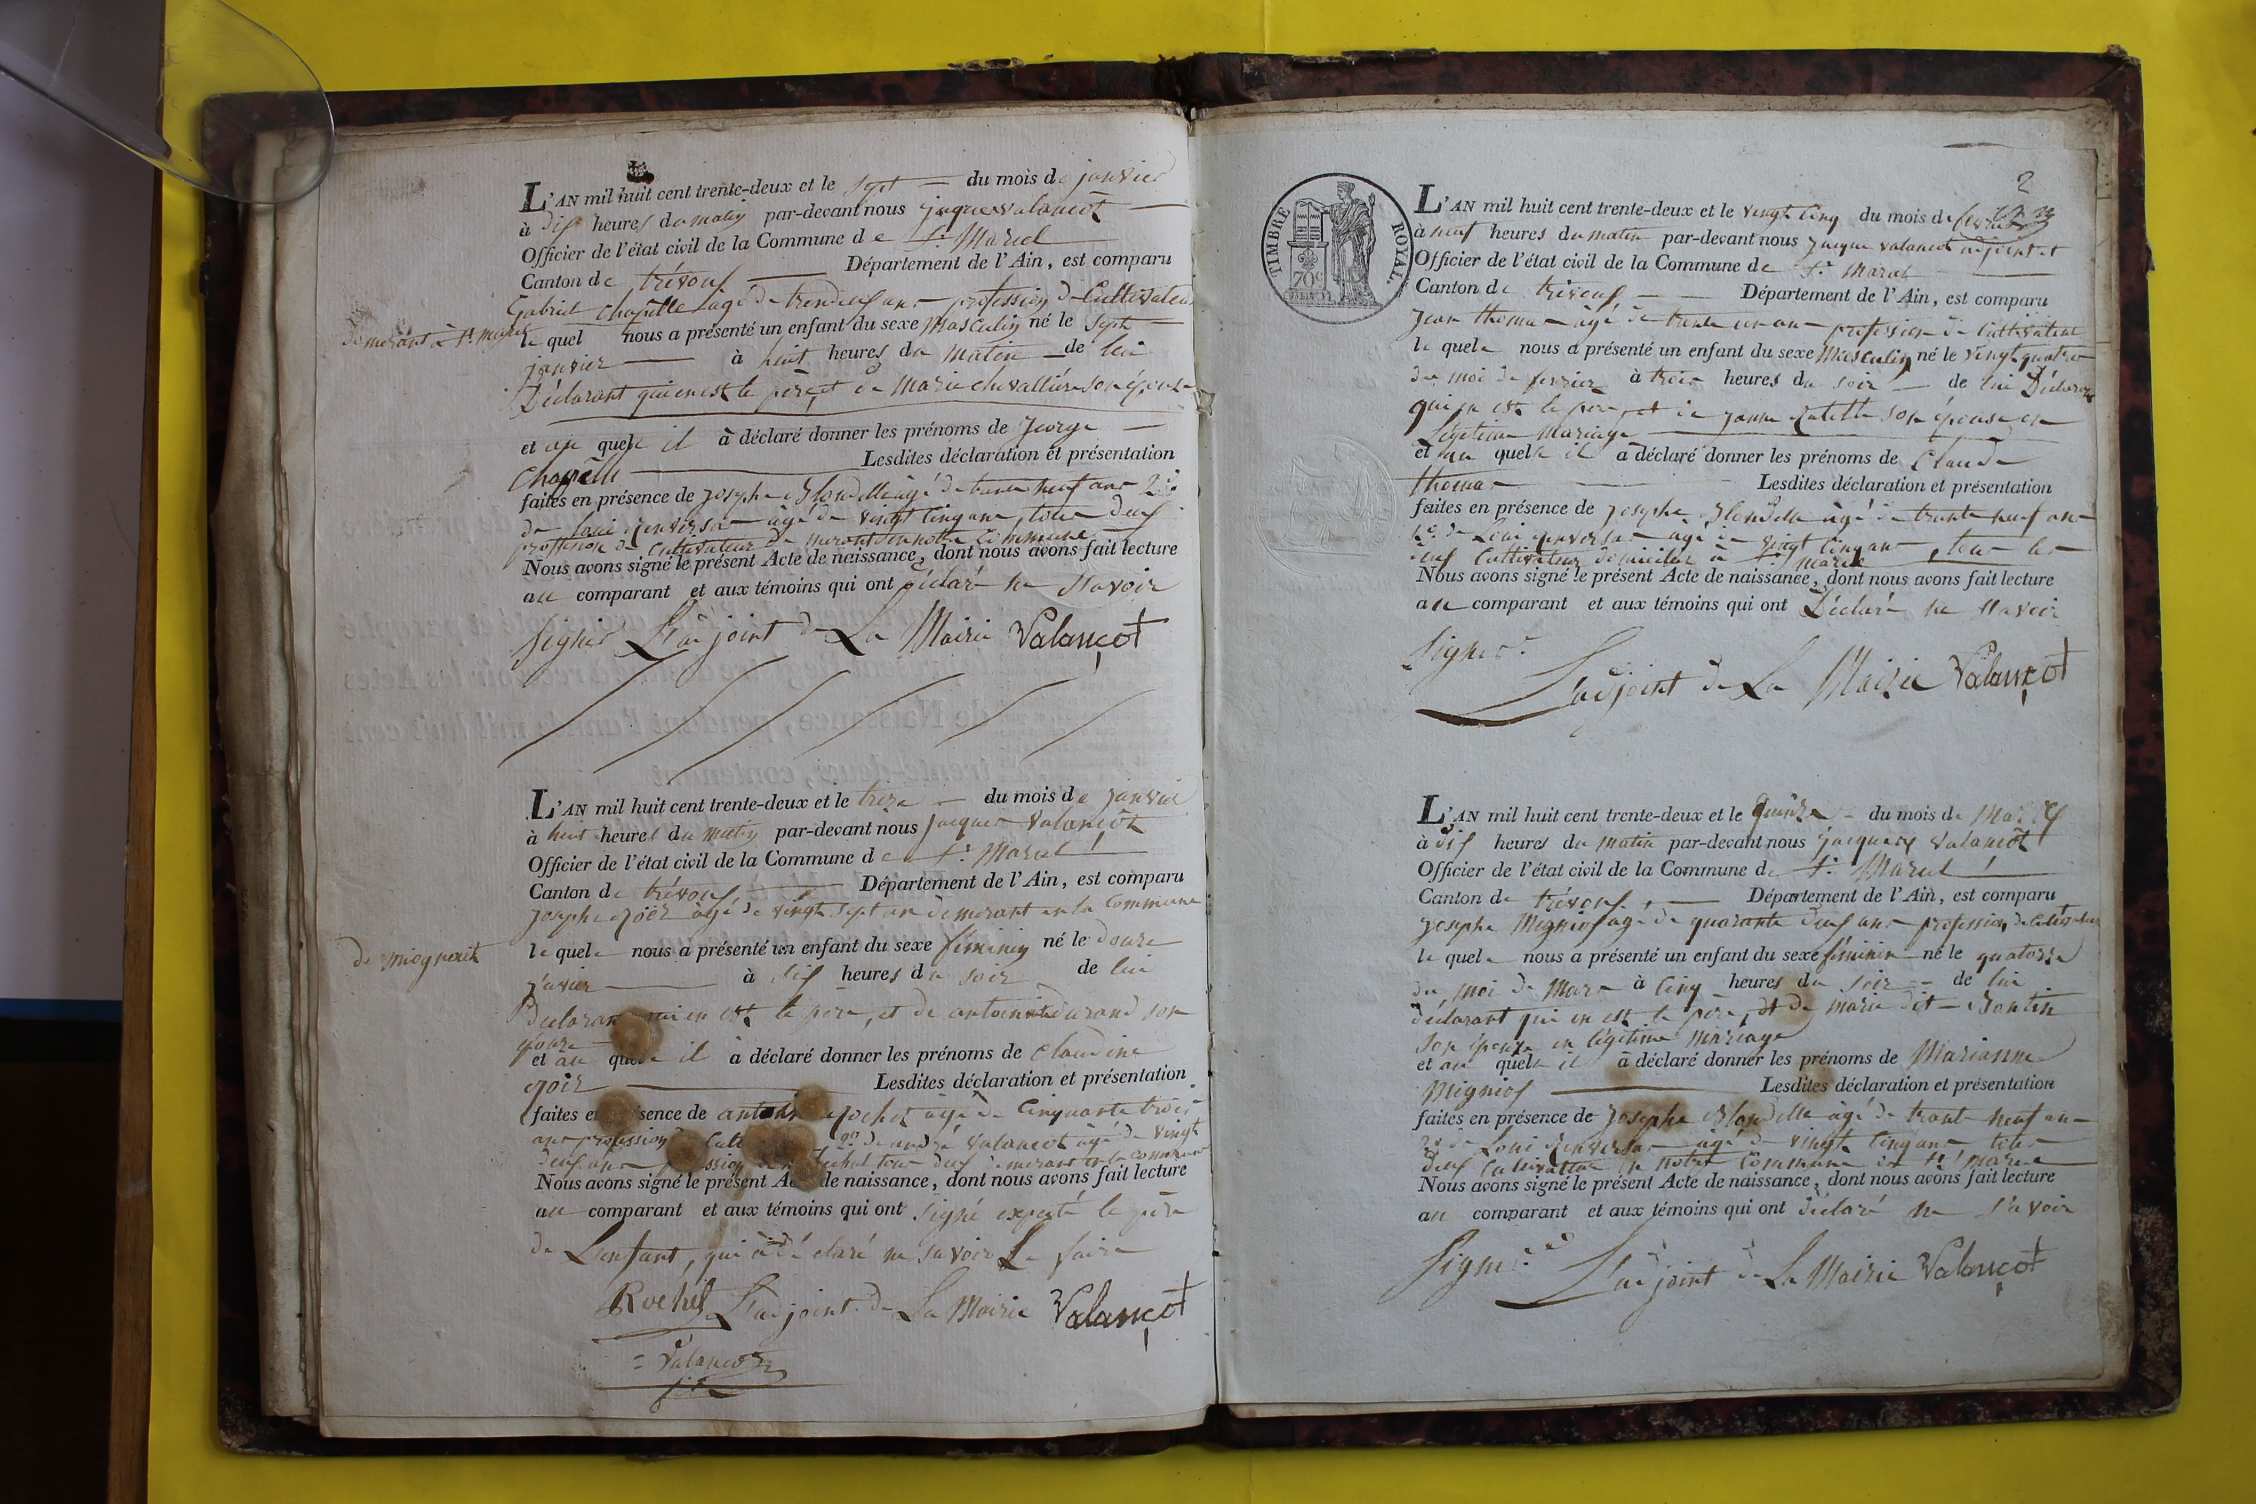 L'AN mil huit cent trente-deux et le sept du mois de janvier
à dix heures du matin par-devant nous jacques valancot
Officier de l'état civil de la Commune de St Marcel
Canton de trévoux Département de l'Ain, est comparu
Gabriel Chapelle agé de ans profession de Cultivateur
demeurant à St marcel
le quel nous a présenté un enfant du sexe Masculin né le sept
janvier à huit heures du matin de lui
Déclarant qui en est le père, et de Marie chevallière son épouse
et au quel il à déclaré donner les prénoms de George
Chapelle Lesdites déclaration et présentation
faites en présence de josephe Blondelle âgé de trante neuf ans
de Loui âgé de vingt cinq ans, tous deux
proffesion de Cultivateur demeurant en notre Commune
Nous avons signé le présent Acte de naissance, dont nous avons fait lecture
au comparant et aux témoins qui ont déclaré ne savoir
signer L'adjoint de La Mairie Valançot
L'AN mil huit cent trente-deux et le treize du mois de janvier
à huit heures du matin par-devant nous jacques valancot
Officier de l'état civil de la Commune de St Marcel
Canton de trévoux Département de l'Ain, est comparu
josephe âgé de vingt sept an demeurant en la Commune
de
le quel nous a présenté un enfant du sexe féminin né le douze
javier à six heures du soir de lui
Déclarant qui en est le père, et de antoinette durand son
épouze
et au quel il à déclaré donner les prénoms de Claudine
Lesdites déclaration et présentation
faites en présence de antoine Rochet âgé de Cinquante trois
ans profession de andré valancot âgé de vingt
deux ans tous deux demeurant en la commune
Nous avons signé le présent Acte de naissance, dont nous avons fait lecture
au comparant et aux témoins qui ont signé expecté le père
de L'enfant, qui à déclaré ne savoir Le faire
Rochet L'adjoint de La Mairie Valançot
Valancot
fils
2
TIMBRE ROYAL
70c
L'AN mil huit cent trente-deux et le vingt Cinq du mois de fevrier
à neuf heures du matin par-devant nous jacque valancot adjoint et
Officier de l'état civil de la Commune de St Marcel
Canton de trévoux Département de l'Ain, est comparu
jean thomas âgé de trente un ans profession de Cultivateur
le quel nous a présenté un enfant du sexe Masculin né le vingt quatre
du moi de fevrier à trois heures du soir de lui Déclarant
qui en est le père, et de janne son épouse en
Légitime Mariage
et au quel il à déclaré donner les prénoms de Claude
thomas Lesdites déclaration et présentation
faites en présence de josephe Blondelle âgé de trante neuf ans
de Loui âgé de vingt Cinq ans, tous les
deux Cultivateur domicilié à St marcel
Nous avons signé le présent Acte de naissance, dont nous avons fait lecture
au comparant et aux témoins qui ont Déclaré ne savoir
Signer
L'adjoint de La Mairie Valançot
L'AN mil huit cent trente-deux et le Quinze du mois de Mars
à dix heures du matin par-devant nous jacques valancot
Officier de l'état civil de la Commune de St Marcel
Canton de trévoux Département de l'Ain, est comparu
josephe Migniot agé de quarante deux ans profession de Cultivateur
le quel nous a présenté un enfant du sexe féminin né le quatorze
du moi de Mars à Cinq heures du soir de lui
déclarant qui en est le père, et de marie dit
son épouze en légitime Mariage
et au quel il à déclaré donner les prénoms de Marianne
Migniot Lesdites déclaration et présentation
faites en présence de josephe Blondelle âgé de trante neuf ans
de Loui âgé de vingt Cinq ans tous
deux Cultivateur en notre Commune de St marcel
Nous avons signé le présent Acte de naissance, dont nous avons fait lecture
au comparant et aux témoins qui ont déclaré ne savoir
Signer L'adjoint de La Mairie Valançot